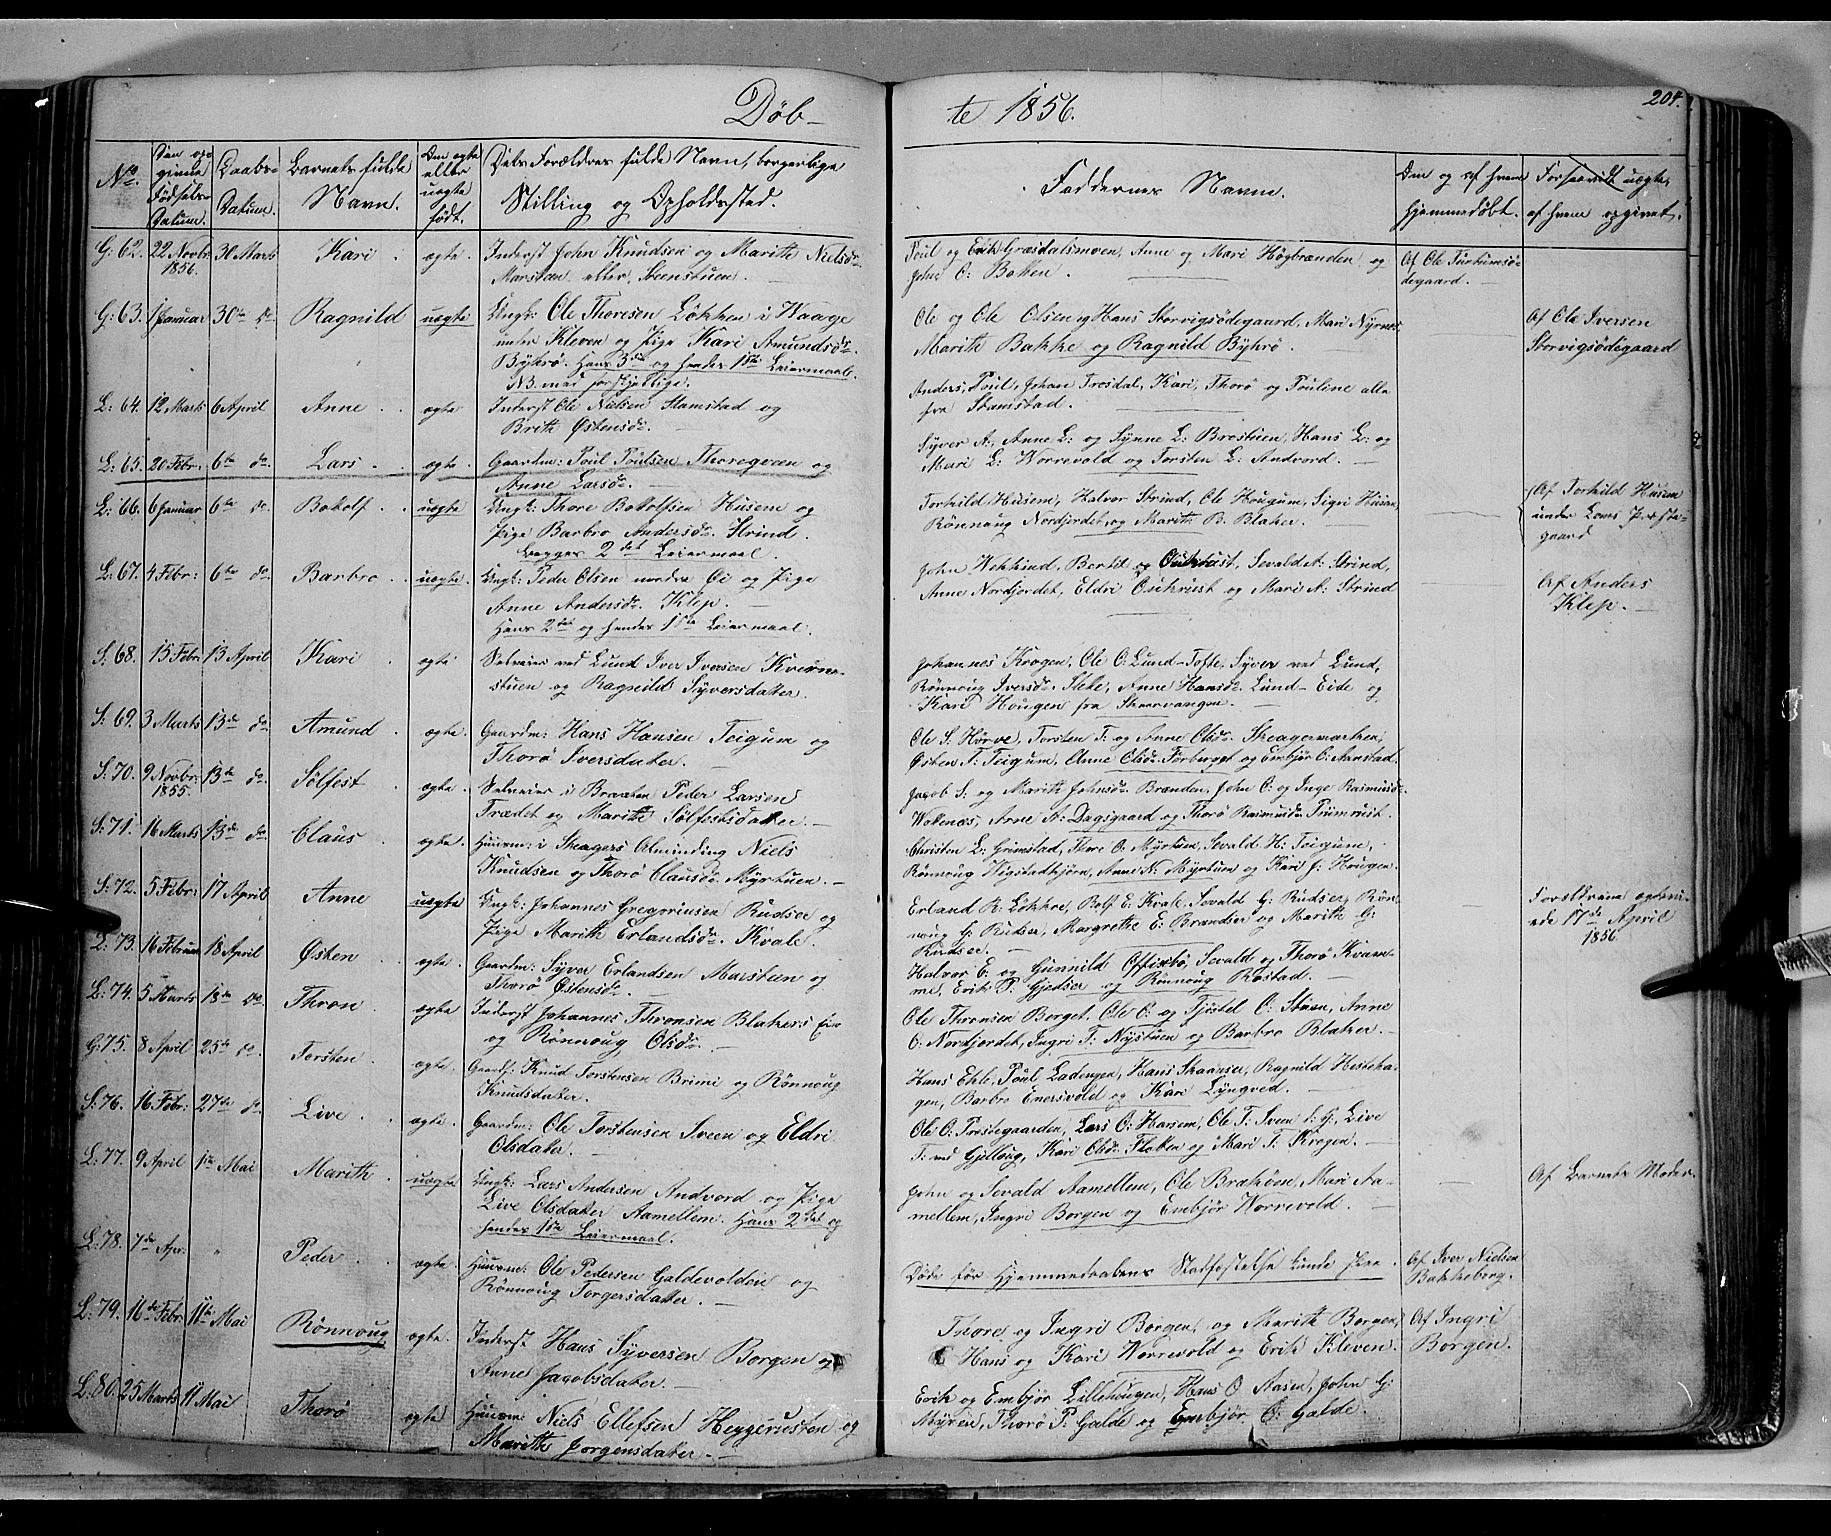 Døb-
te 1856.
204.
No.
Den opgivne Fødsels-Datum.
Daabs-Datum.
Barnets fulde Navn.
Om ægte eller uægte født.
Dets Forældres fulde Navn, borgerlige Stilling og Opholdssted.
Faddernes Navne.
Om og af hvem hjemmedøbt.
uægte, af hvem opgivet.
G: 62. 22 Novbr: 1856. 30 Marts Kari. ægte. Inderst John Knudsen og Marith Nielsdr.
Marstein eller Steenstuen.
Poul og Erik Græsdalsmoen, Anne og Mari Høgbranden og
John O: Bakken.
Af Ole
degaard.
G: 63. 1 Januar 30te do. Ragnild uægte Ungk: Ole Thoresen Løkken i Waage
under Kleven og Pige Kari Amundsdr.
Bykrø. Hans 3de og hendes 1ste Leiermaal.
NB. med forskjellige.
Ole og Ole Olsen og Hans Storvigsødegaard, Mari Nyrnes
Marith Bakke og Ragnild Bykrø.
Af Ole Iversen
Storvigsødegaard
L: 64. 12 Marts 6 April Anne. ægte. Inderst Ole Nielsen Stamstad og
Brith Østensdr.
Anders, Poul, Johan Trosdal, Kari, Thorø og Pouline alle
fra Stamstad.
L: 65. 20 Febr: 6te do. Lars. ægte. Gaardm: Poul Poulsen Thoregveen og
Anne Larsdr.
Syver A:, Anne L: og Synne L: Brostuen, Hans L: og
Mari L: Worrevold og Torsten L: Andvord.
L: 66. 6 Januar 6te do. Botolf. uægte Ungk: Thore Botolfsen Husem og
Pige Barbro Andersdr. Strind.
Begges 2det Leiermaal.
Torhild Husem, Halvor Strind, Ole Hougum, Sigri Husem,
Rønnoug Nordjordet, og Marith B. Blaker.
Af Torhild Husem
under Loms Præste-
gaard
L: 67. 4 Febr: 6te do. Barbro. uægte. Ungk: Peder Olsen nordre Øi og Pige
Anne Andersdr. Klep.
Hans 2det og hendes 1ste Leiermaal.
John Wekkind, Bertil og Oukrust, Sevald A: Strind,
Anne Nordjordet, Eldri Oukrust og Mari A: Strind
Af Anders
Klep.
S: 68. 15 Febr: 13 April Kari ægte Selveier ved Lund Iver Iversen Kværne-
stuen og Ragnild Syversdatter.
Johannes Krogen, Ole O: Lund-Tofte, Syver ved Lund,
Rønnoug Iversdr. Sleke, Anne Hansdr. Lund-Eide og
Kari Hougen fra Skaarvangen.
S: 69. 3 Marts 13de do. Amund. ægte. Gaardm: Hans Hansen Teigum og
Thorø Iversdatter.
Ole S. Hørve, Torsten T: og Anne Olsdr. Skeagermarken,
Østen T: Teigum, Anne Olsdr. Forberget og Embjør O: Aanstad.
S: 70. 9 Novbr: 1855. 13de do. Sølfest ægte. Selveier i Braaten Peder Larsen
Trædet og Marith Sølfestsdatter.
Jacob S. og Marith Johnsdr. Branden, John O: og Inge Rasmusdr.
Wollenæs, Arne A: Dagsgaard og Thorø Rasmusdr. Prumrust.
S: 71. 16 Marts 13de do. Claus. ægte. Huusm: i Skeagers Alminding Niels
Knudsen og Thorø Clausdr. Myrtuen.
Christen L: Grimstad, Thore O. Myrtuen, Sevald H: Teigum,
Rønnoug Wigstadbjørn, Anne N: Myrtuen og Kari J: Hougen.
S: 72. 5 Febr: 17 April Anne uægte Ungk: Johannes Gregoriusen Rudser og
Pige Marith Erlandsdr. Kvale.
Erland R. Løkkre, Rolf E. Kvale, Sevald G: Rudser, Røn-
noug G: Rudser, Margrethe E: Brandser og Marith G:
Rudser.
Forældrene ægtevi-
ede 17de April
1856.
L: 73. 16 Februar 18 April Østen ægte. Gaardm: Syver Erlandsen Marstein og
Thorø Østensdr.
Halvor E. og Gunnild Offistø, Sevald og Thorø Kvam-
me, Erik P. Gjedser og Rønnoug Rostad.
L: 74. 5 Marts 18de do. Thron. ægte Inderst Johannes Thronsen Blakers Eie
og Rønnoug Olsdr.
Ole Thronsen Berget, Ole O: og Tjøstel O: Stuen, Anne
O: Nordjordet, Ingri T: Nystuen og Barbro Blaker.
G: 75. 8 April 25de do. Torsten. ægte. Gaardf: Knud Torstensen Brimi og Rønnoug
Knudsdatter.
Hans Ehle, Poul Ladengen, Hans Skaanser, Ragnild Hesteha-
gen, Barbro Enersvold og Kari Lyngved.
S: 76. 16 Febr: 27de do. Live. ægte. Gaardm: Ole Torstensen Sveen og Eldri
Olsdatter.
Ole O: Prestegaarden, Lars O: Harsem, Ole T: Sveen i G:, Live
T: ved Gjelloug, Kari Olsdr. Flaken og Mari T: Krogen.
L: 77. 9 April 1ste Mai Marith uægte Ungk: Lars Andersen Andvord og Pige
Live Olsdatter Aamellem. Hans 2det og
hendes 1ste Leiermaal.
John og Sevald Aamellem, Ole Brakøen, Mari Aa-
mellem, Ingri Borgen og Embjør Worrevold.
Af Barnets Moder.
L: 78. 7de Apr: " Peder. ægte. Huusm: Ole Pedersen Galdevolden og
Rønnoug Torgersdatter.
Døde før Hjemmedaabens Stadfæstelse kunde skee.
Af Iver Nielsen
Bakkeberg.
L: 79. 16de Febr: 11te Mai Rønnoug ægte. Inderst Hans Syversen Borgen og
Anne Jacobsdatter.
Thore og Ingri Borgen, og Marith Borgen,
Hans og Kari Worrevold og Erik Kleven.
Af Ingri
Borgen.
L: 80. 25 Marts 11 Mai Thorø ægte Huusm: Niels Ellefsen Heggerusten og
Marith Jørgensdatter.
Erik og Embjør Lillehougen, Hans O Aasen, John G:
Myren, Thorø P: Galde og Embjør O: Galde.